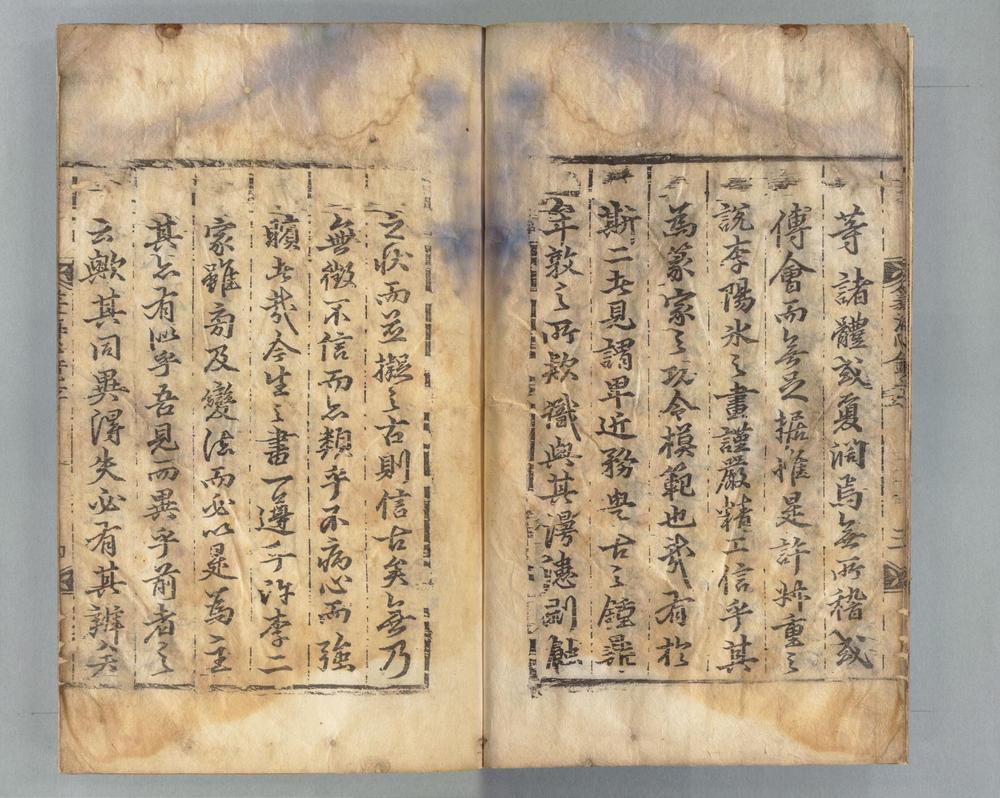 等諸體或夏濶焉無所稽或
傅會而無足据惟是許叔重之
說李陽氷之畫謹嚴精工信乎其
為篆家之玏令模範也哉有於
斯二者見謂卑近務學古之鍾鼎
年敦之所欵識與其漫漶剥蝕
之状而並擬之古則信古矣無乃
無徵不信而亦類乎不病心而強
顰者哉今生之書一遵乎許李二
家雖旁及變法而必以是為主
其亦有似乎吾見而異乎前者之
云歟其同異得失必有其辨矣